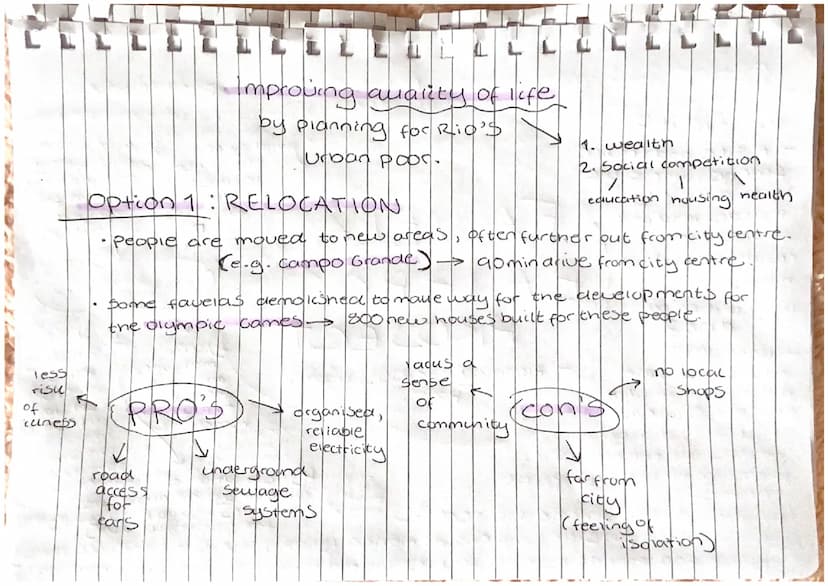 Improving quality of life
by planning for Rio's
urban poor.
1. wealth
2. Social competition
education housing health
Option 1: RELOCATION
• People are moved to new areas, often further out from city centre.
(e.g. Campo Grande) → 90 min drive from city centre.
• Some favelas demolished to make way for the developments for
the Olympic Games → 800 new houses built for these people.
PRO's
less
risk
of
illness
road
access
for
cars
underground
sewage
systems
organised,
reliable
electricity
con's
lacks a
sense
of
community
no local
shops
far from
city
(feeling of
isolation)